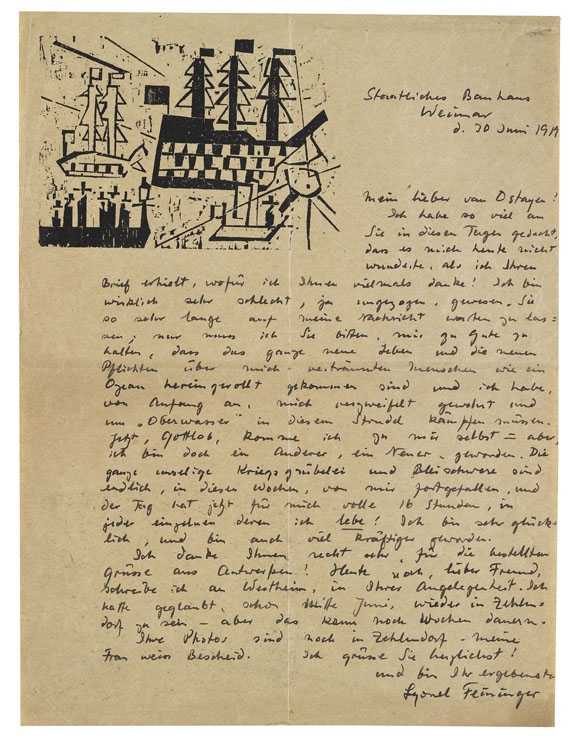 Staatliches Bauhaus
Weimar
d. 30 Juni 1919
Mein lieber van Ostayen!
Ich habe so viel an
Sie in diesen Tagen gedacht,
dass es mich heute nicht
wunderte, als ich Ihren
Brief erhielt, wofür ich Ihnen vielmals danke! Ich bin
wirklich sehr schlecht, ja ungezogen, gewesen, Sie
so sehr lange auf meine Nachricht warten zu las-
sen; nur muss ich Sie bitten, mir zu Gute zu
halten, dass das ganze neue Leben und die neuen
Pflichten über mich verträumten Menschen wie ein
Ozean hereingerollt gekommen sind und ich habe,
von Anfang an, mich verzweifelt gewehrt und
um "Oberwasser" in diesem Strudel kämpfen müssen.
Jetzt, Gottlob, komme ich zu mir selbst – aber
ich bin doch ein Anderer, ein Neuer geworden. Die
ganze unselige Kriegsgrübelei und Bleischwere sind
endlich, in diesen Wochen, von mir fortgefallen, und
der Tag hat jetzt für mich volle 16 Stunden, in
jeder einzelnen deren ich lebe! Ich bin sehr glück-
lich, und bin auch viel kräftiger geworden.
Ich danke Ihnen recht sehr, für die bestellten
Grüsse aus Antwerpen! Heute noch, lieber Freund,
schreibe ich an Westheim, in Ihrer Angelegenheit. Ich
hatte geglaubt, schon Mitte Juni, wieder in Zehlen-
dorf zu sein – aber das kann noch Wochen dauern.
Ihre Photos sind noch in Zehlendorf – meine
Frau weiss Bescheid. Ich grüsse Sie herzlichst!
und bin Ihr ergebenster
Lyonel Feininger